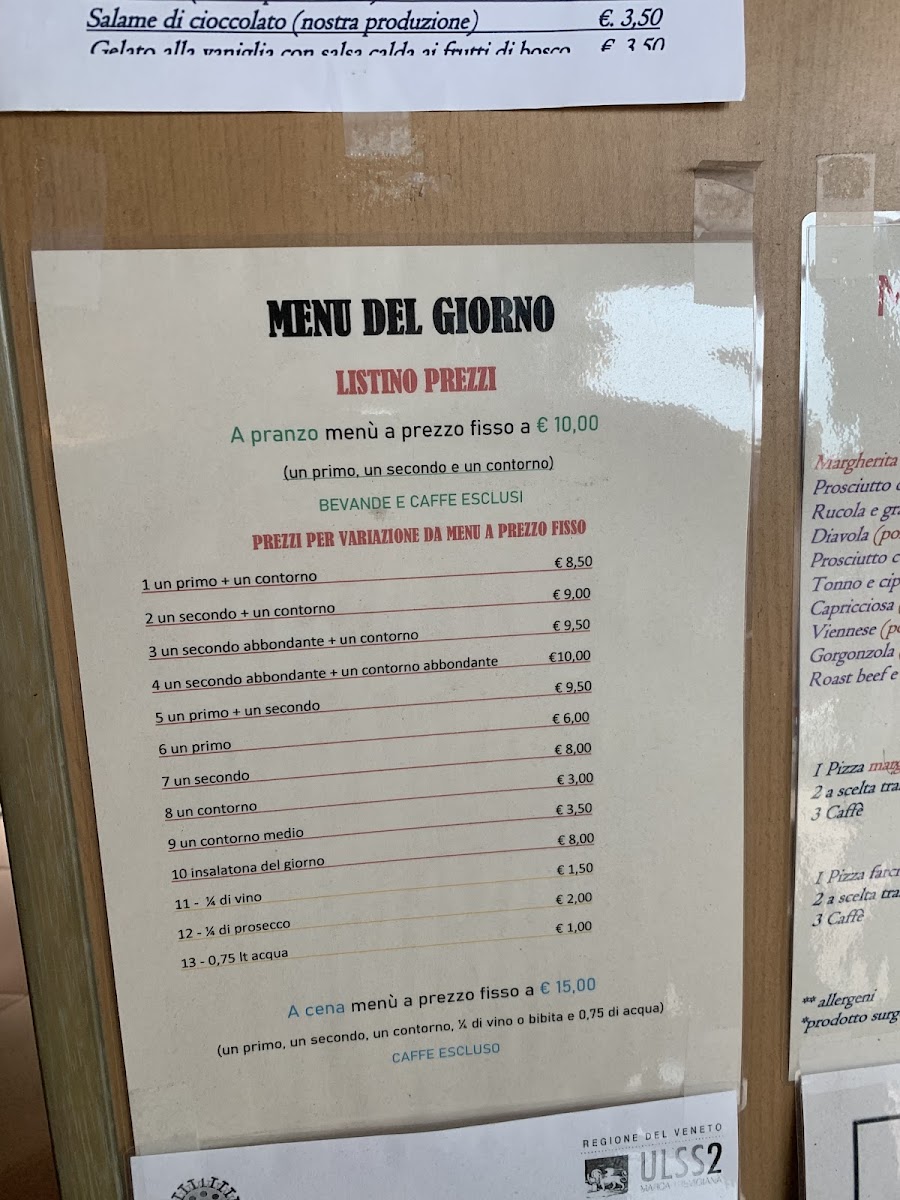 Salame di cioccolato (nostra produzione) €. 3,50
Gelato alla vaniglia con salsa calda ai frutti di bosco € 3,50
MENU DEL GIORNO
LISTINO PREZZI
A pranzo menù a prezzo fisso a € 10,00
(un primo, un secondo e un contorno)
BEVANDE E CAFFE ESCLUSI
PREZZI PER VARIAZIONE DA MENU A PREZZO FISSO
1 un primo + un contorno € 8,50
2 un secondo + un contorno € 9,00
3 un secondo abbondante + un contorno € 9,50
4 un secondo abbondante + un contorno abbondante €10,00
5 un primo + un secondo € 9,50
6 un primo € 6,00
7 un secondo € 8,00
8 un contorno € 3,00
9 un contorno medio € 3,50
10 insalatona del giorno € 8,00
11 - ¼ di vino € 1,50
12 - ¼ di prosecco € 2,00
13 - 0,75 lt acqua € 1,00
A cena menù a prezzo fisso a € 15,00
(un primo, un secondo, un contorno, ¼ di vino o bibita e 0,75 di acqua)
CAFFE ESCLUSO
REGIONE DEL VENETO
ULSS2
MARCA TREVIGIANA
Margherita
Prosciutto
Rucola e
Diavola
Prosciutto
Tonno e
Capricciosa
Viennese
Gorgonzola
Roast beef e
1 Pizza
2 a scelta
3 Caffè
1 Pizza
2 a scelta
3 Caffè
** allergeni
*prodotto